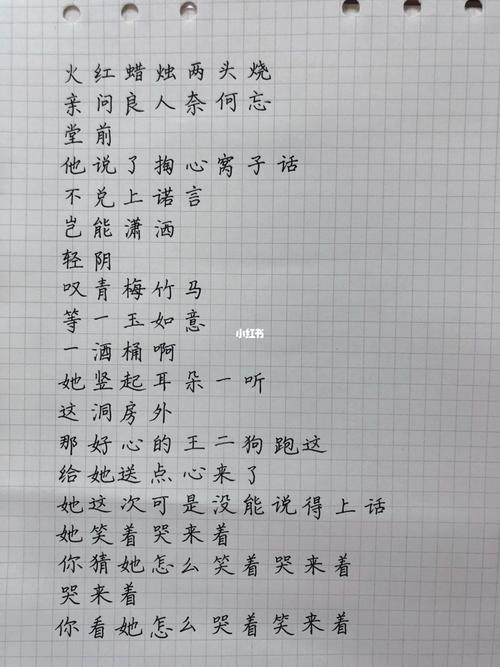 火红蜡烛两头烧
亲问良人奈何忘
堂前
他说了掏心窝子话
不兑上诺言
岂能潇洒
轻阴
叹青梅竹马
等一玉如意
小红书
一酒桶啊
她竖起耳朵一听
这洞房外
那好心的王二狗跑这
给她送点心来了
她这次可是没能说得上话
她笑着哭来着
你猜她怎么笑着哭来着
哭来着
你看她怎么哭着笑来着